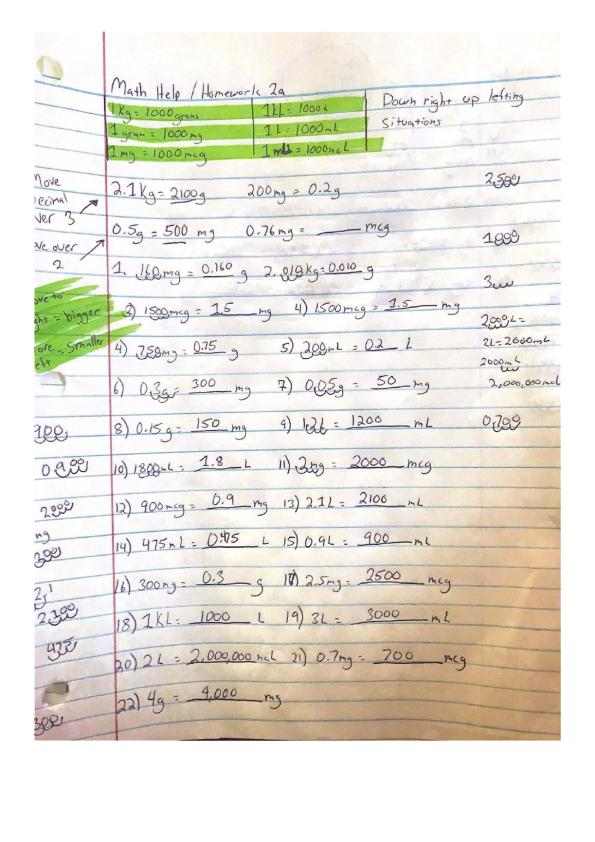 Math Help / Homework 2a
1 kg = 1000 grams 1 kL = 1000 L
1 gram = 1000 mg 1 L = 1000 mL
1 mg = 1000 mcg 1 mL = 1000 mcL
Down right up lefting
situations
over 3
2.1 kg = 2100 g 200 mg = 0.2 g
0.5 g = 500 mg 0.76 mg = ____ mcg
over
2
1. 160 mg = 0.160 g 2. .010 kg = 0.010 g
= bigger
= Smaller
3) 1500 mcg = 1.5 mg 4) 1500 mcg = 1.5 mg
4) 750 mg = 0.75 g 5) 200 mL = 0.2 L
6) 0.3 g = 300 mg 7) 0.05 g = 50 mg
8) 0.15 g = 150 mg 9) 1.2 L = 1200 mL
10) 1800 mL = 1.8 L 11) 2 mg = 2000 mcg
12) 900 mcg = 0.9 mg 13) 2.1 L = 2100 mL
14) 475 mL = L 15) 0.9 L = 900 mL
16) 300 mg = 0.3 g 17) 2.5 mg = 2500 mcg
18) 1 KL = 1000 L 19) 3 L = 3000 mL
20) 2 L = 2,000,000 mcL 21) 0.7 mg = 700 mcg
22) 4 g = 4,000 mg
2,500
1000
2000 L =
2L = 2000 mL
2000 mL
2,000,000 mcL
0.700
900
0.900
2000
mg
300
2.1
2,100
475
300